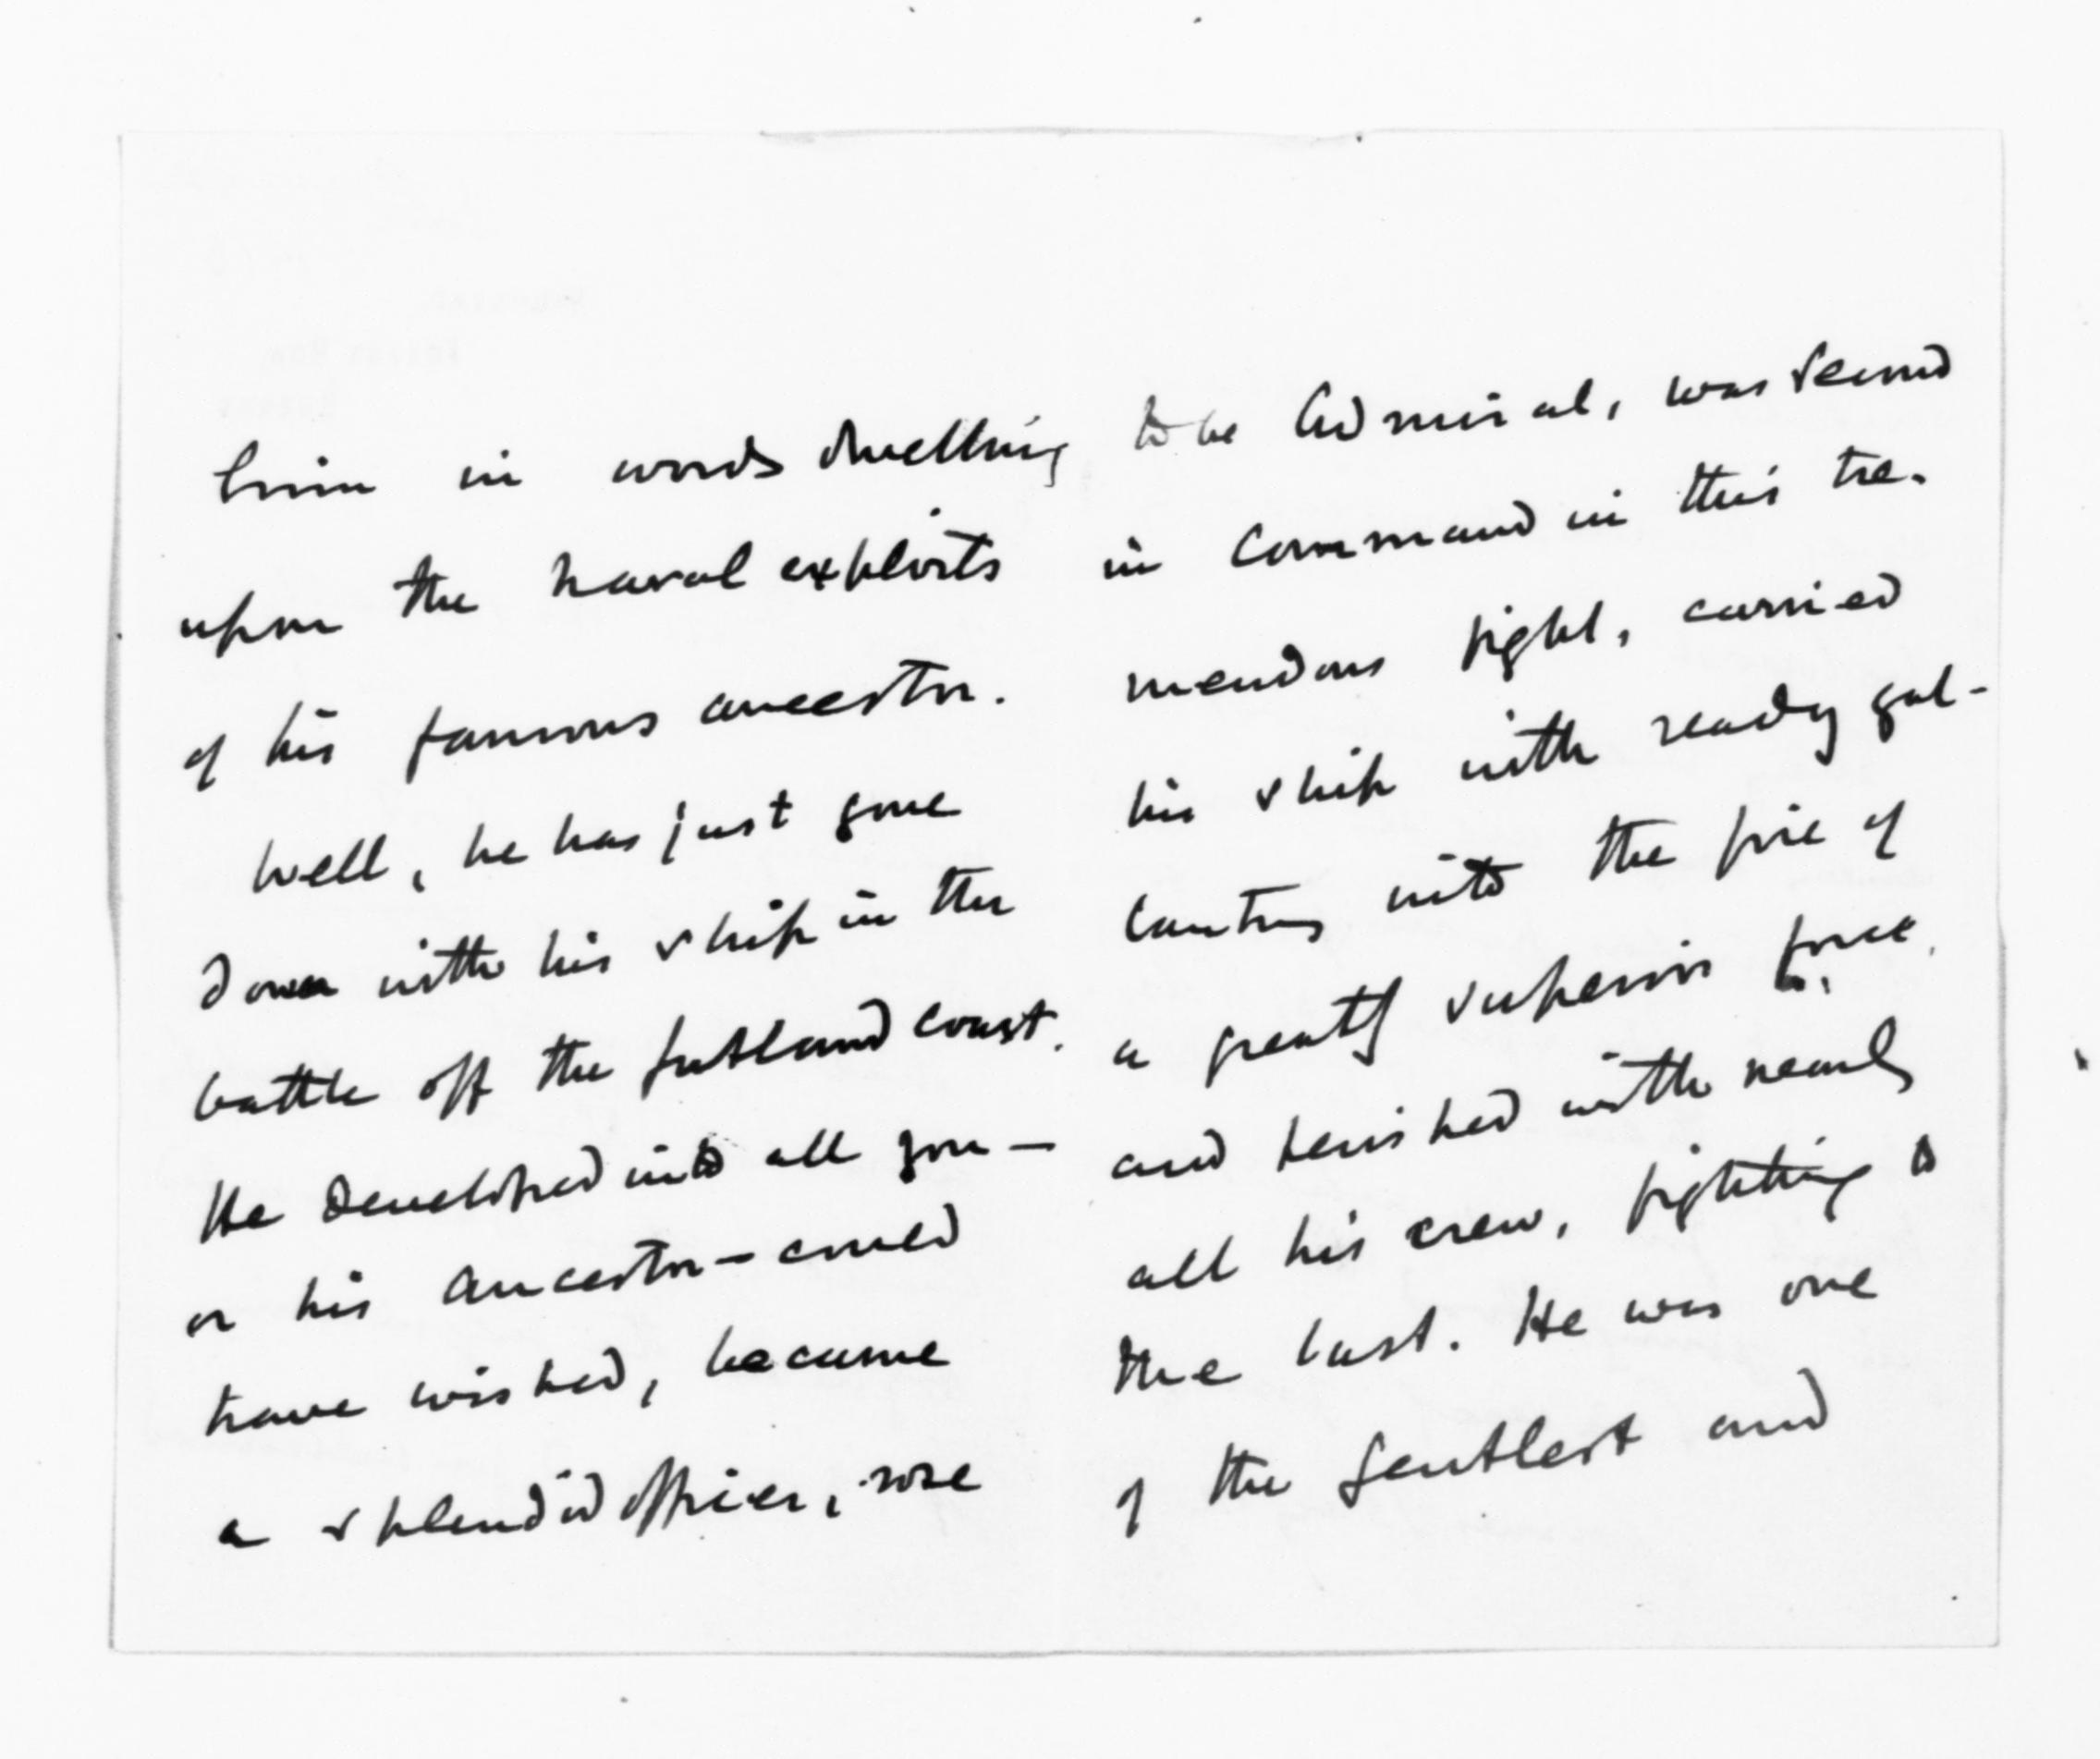 him in words dwelling
upon the naval exploits
of his famous ancestor.
Well, he has just gone
down with his ship in the
battle off the Jutland coast.
He developed into all you —
or his ancestor — could
have wished, became
a splendid officer, rose
to be Admiral, was second
in command in this tre-
mendous fight, carried
his ship with ready gal-
lantry into the fire of
a greatly superior force,
and perished with nearly
all his crew, fighting to
the last. He was one
of the gentlest and